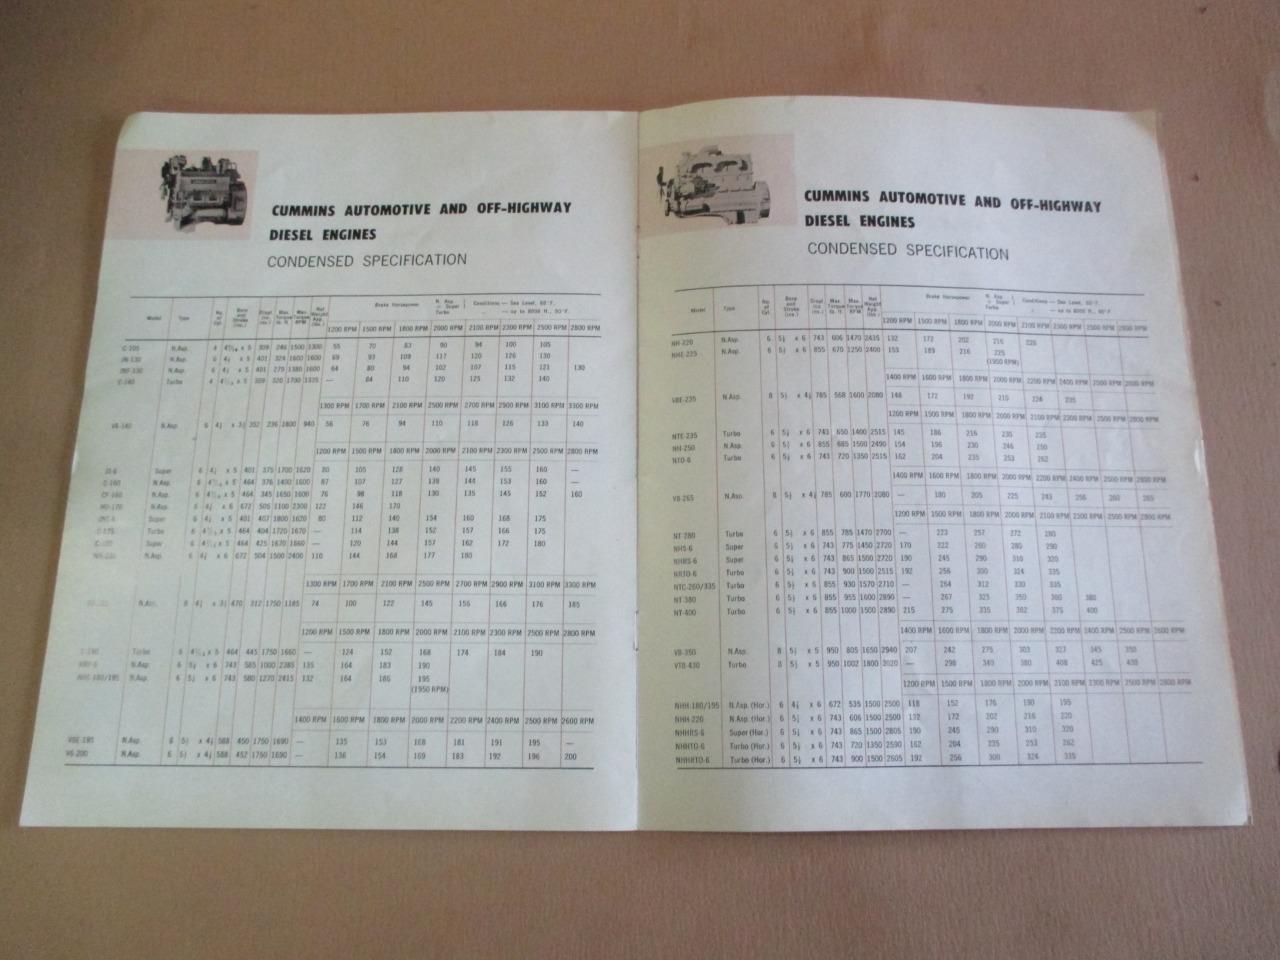 CUMMINS AUTOMOTIVE AND OFF-HIGHWAY
DIESEL ENGINES
CONDENSED SPECIFICATION
Model Type No. of Cyl. Bore and Stroke (ins.) Displ. (ins.) Max. Torque lb. ft. Max. Torque RPM Net Weight App. (lbs.) Brake Horsepower N. Asp. Super Turbo Conditions — Sea Level, 60°F.
1200 RPM 1500 RPM 1800 RPM 2000 RPM 2100 RPM 2300 RPM 2500 RPM 2800 RPM
C-105 N.Asp. 1500 1300 55 70 83 90 94 100 105
JN-130 N.Asp. 6 x 5 401 324 1600 1600 69 93 109 117 120 126 130
N.Asp. 6 x 5 401 1600 64 80 94 102 107 115 121 130
C-140 Turbo 320 1700 — 84 110 120 125 132 140
1300 RPM 1700 RPM 2100 RPM 2500 RPM 2700 RPM 2900 RPM 3100 RPM 3300 RPM
V8-140 N.Asp. 6 1800 940 56 76 94 110 118 126 133 140
1200 RPM 1500 RPM 1800 RPM 2000 RPM 2100 RPM 2300 RPM 2500 RPM 2800 RPM
Super 6 x 5 401 375 1700 1620 80 105 128 140 145 155 160 —
C-160 N.Asp. 6 x 5 464 376 1400 1600 87 107 127 139 144 153 160 —
CF-160 N.Asp. 6 x 5 464 345 1650 1600 76 98 118 130 135 145 152 160
N.Asp. 6 x 6 672 505 1100 2300 122 146 170
Super 6 x 5 401 407 1800 1620 80 112 140 154 160 168 175
Turbo 6 x 5 464 404 1720 1670 — 114 138 152 157 166 175
Super 6 x 5 464 425 1670 1660 — 120 144 157 162 172 180
N.Asp. 6 x 6 672 504 1500 2400 110 144 168 177 180
1300 RPM 1700 RPM 2100 RPM 2500 RPM 2700 RPM 2900 RPM 3100 RPM 3300 RPM
N.Asp. 8 470 312 1750 1185 74 100 122 145 156 166 176 185
1200 RPM 1500 RPM 1800 RPM 2000 RPM 2100 RPM 2300 RPM 2500 RPM 2800 RPM
Turbo 6 x 5 464 445 1750 1660 — 124 152 168 174 184 190
N.Asp. 6 x 6 743 585 1000 2385 135 164 183 190
NHE-180/195 N.Asp. 6 x 6 743 580 1270 2415 132 164 186 195
(1950 RPM)
1400 RPM 1600 RPM 1800 RPM 2000 RPM 2200 RPM 2400 RPM 2500 RPM 2600 RPM
V6E-195 N.Asp. 6 588 450 1750 1690 — 135 153 168 181 191 195 —
V6-200 N.Asp. 6 588 452 1750 1690 — 136 154 169 183 192 196 200
CUMMINS AUTOMOTIVE AND OFF-HIGHWAY
DIESEL ENGINES
CONDENSED SPECIFICATION
Model Type No. of Cyl. Bore and Stroke (ins.) Displ. (ins.) Max. Torque lb. ft. Max. Torque RPM Net Weight App. (lbs.) Brake Horsepower N. Asp. Super Turbo Conditions — Sea Level, 60°F.
1200 RPM 1500 RPM 1800 RPM 2000 RPM 2100 RPM 2300 RPM 2500 RPM 2800 RPM
NH-220 N.Asp. 6 x 6 743 606 1470 2415 132 172 202 216 220
NHE-225 N.Asp. 6 x 6 855 670 1250 2400 153 189 216 225
(1950 RPM)
1400 RPM 1600 RPM 1800 RPM 2000 RPM 2200 RPM 2400 RPM 2500 RPM 2600 RPM
V8E-235 N.Asp. 8 785 568 1600 2080 148 172 192 210 224 235
1200 RPM 1500 RPM 1800 RPM 2000 RPM 2100 RPM 2300 RPM 2500 RPM 2800 RPM
NTE-235 Turbo 6 x 6 743 650 1400 2515 145 186 216 235 235
NH-250 N.Asp. 6 x 6 855 685 1500 2490 154 196 230 246 250
NTO-6 Turbo 6 x 6 743 720 1350 2515 162 204 235 253 262
1400 RPM 1600 RPM 1800 RPM 2000 RPM 2200 RPM 2400 RPM 2500 RPM 2600 RPM
V8-265 N.Asp. 8 785 600 1770 2080 — 180 205 225 243 256 260 265
1200 RPM 1500 RPM 1800 RPM 2000 RPM 2100 RPM 2300 RPM 2500 RPM 2800 RPM
NT-280 Turbo 6 x 6 855 785 1470 2700 — 223 257 272 280
NHS-6 Super 6 x 6 743 775 1450 2720 170 222 260 280 290
NHRS-6 Super 6 x 6 743 865 1500 2720 190 245 290 310 320
NRTO-6 Turbo 6 x 6 743 900 1500 2515 192 256 300 324 335
NTC-260/335 Turbo 6 x 6 855 930 1570 2710 — 264 312 330 335
NT-380 Turbo 6 x 6 855 955 1600 2890 — 267 325 350 360 380
NT-400 Turbo 6 x 6 855 1000 1500 2890 215 275 335 362 375 400
1400 RPM 1600 RPM 1800 RPM 2000 RPM 2200 RPM 2400 RPM 2500 RPM 2600 RPM
V8-350 N.Asp. 8 x 5 950 805 1650 2940 207 242 275 303 327 345 350
VT8-430 Turbo 8 x 5 950 1002 1800 3020 — 298 340 380 408 425 430
1200 RPM 1500 RPM 1800 RPM 2000 RPM 2100 RPM 2300 RPM 2500 RPM 2800 RPM
NHH-180/195 N.Asp. (Hor.) 6 x 6 672 535 1500 2500 118 152 176 190 195
NHH-220 N.Asp. (Hor.) 6 x 6 743 606 1500 2500 132 172 202 216 220
NHHRS-6 Super (Hor.) 6 x 6 743 865 1500 2805 190 245 290 310 320
NHHTO-6 Turbo (Hor.) 6 x 6 743 720 1350 2590 162 204 235 253 262
NHHRTO-6 Turbo (Hor.) 6 x 6 743 900 1500 2605 192 256 300 324 335